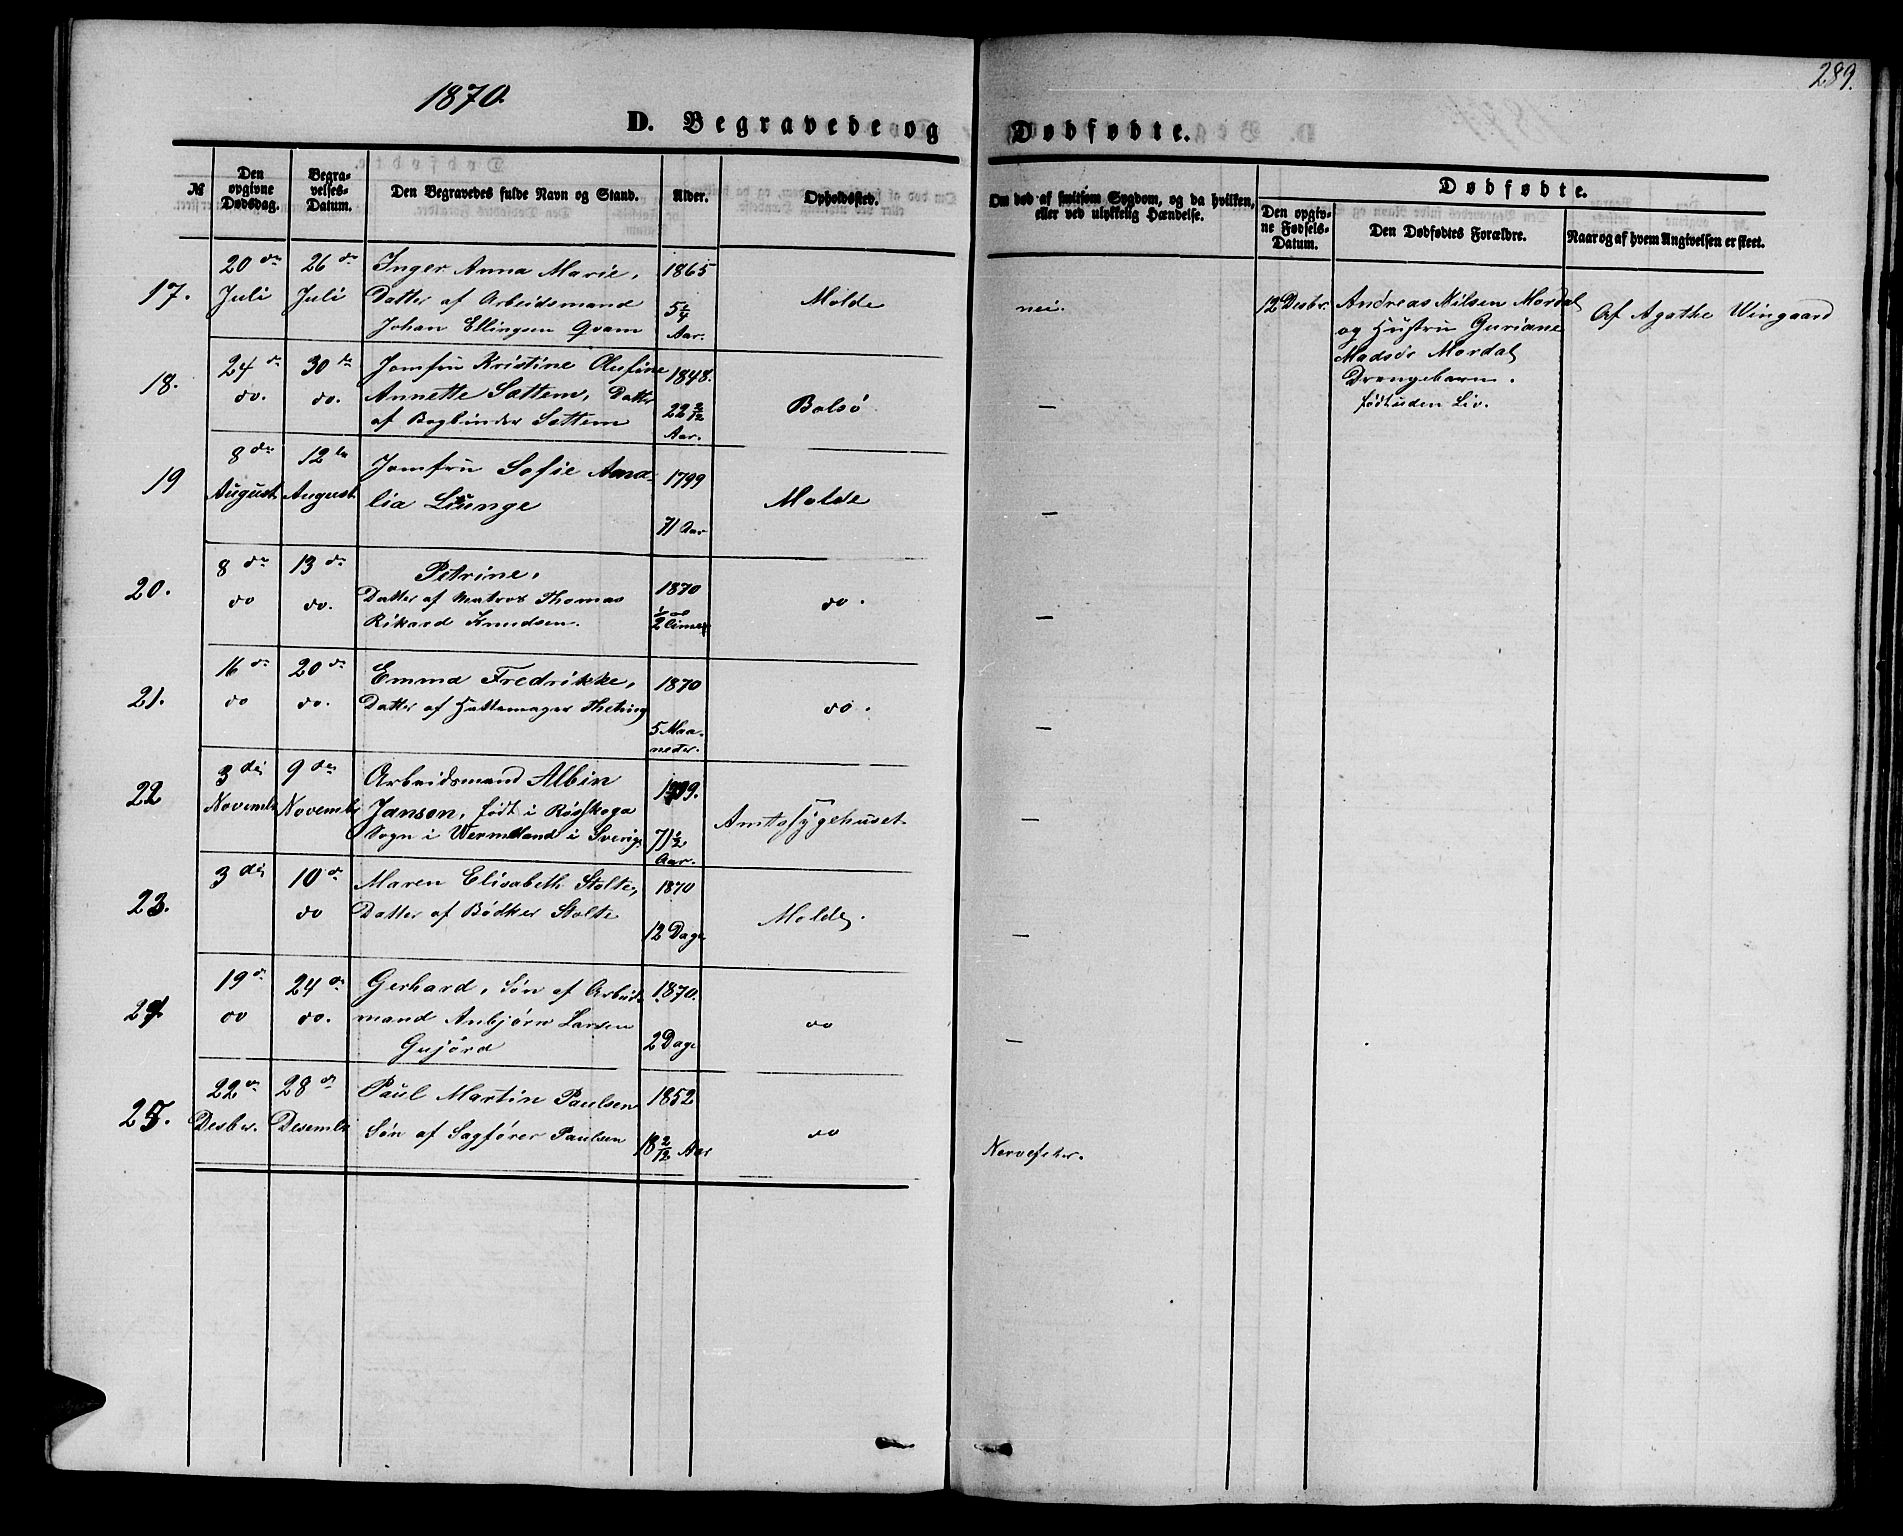 1870.
289.
D. Begravede og Dødfødte.
№
Den opgivne Dødsdag.
Begravelses-Datum.
Den Begravedes fulde Navn og Stand.
Alder.
Opholdssted.
Om død af smitsom Sygdom, og da hvilken, eller ved ulykkelig Hændelse.
Dødfødte.
Den opgivne Fødsels-Datum.
Den Dødfødtes Forældre.
Naar og af hvem Angivelsen er skeet.
17.
20 de
Juli
26 de
Juli
Inger Anna Marie,
Datter af Arbeidsmand
Johan Ellingsen Qvam
1865
5 1/4
Aar.
Molde
nei.
12 Desbr.
Andreas Nilsen Mordal
og Hustru Guriane
Madsdr Mordal
Drengebarn.
født uden Liv.
Af Agathe Wingaard
18.
24 de
do.
30 te
do.
Jomfru Kristine Olufine
Annette Sættem, Datter
af Bogbinder Sættem
1848.
22 2/12
Aar.
Bolsø
—
19
8 de
August
12 te
August
Jomfru Sofie Ama-
lia Liunge
1799
71 Aar
Molde
—
20.
8 de
do
13 de
do.
Petrine,
Datter af Matros Thomas
Rikard Knudsen.
1870
do.
—
21.
16 de
do
20 de
do.
Emma Fredrikke,
Datter af Hattemager
1870
5 Maa-
neder.
do.
—
22
3 die
Novembr
9 de
Novembr
Arbeidsmand Albin
Janson, født i
Sogn i Wermeland i Sverig.
1799.
71 1/2
Aar.
Amtssygehuset.
—
23.
3 die
10 de
do
Maren Elisabeth Stolte,
Datter af Bødker Stolte
1870
12 Dage
Molde.
—
24.
19 de
do
24 de
do.
Gerhard, Søn af Arbeids-
mand Anbjørn Larsen
Gujord
1870.
2 Dage
do
—
25.
22 de
Desbr.
28 de
Desembr
Paul Martin Paulsen
Søn af Sagfører Paulsen
1852
18 2/12 Aar
do
Nervefeber.